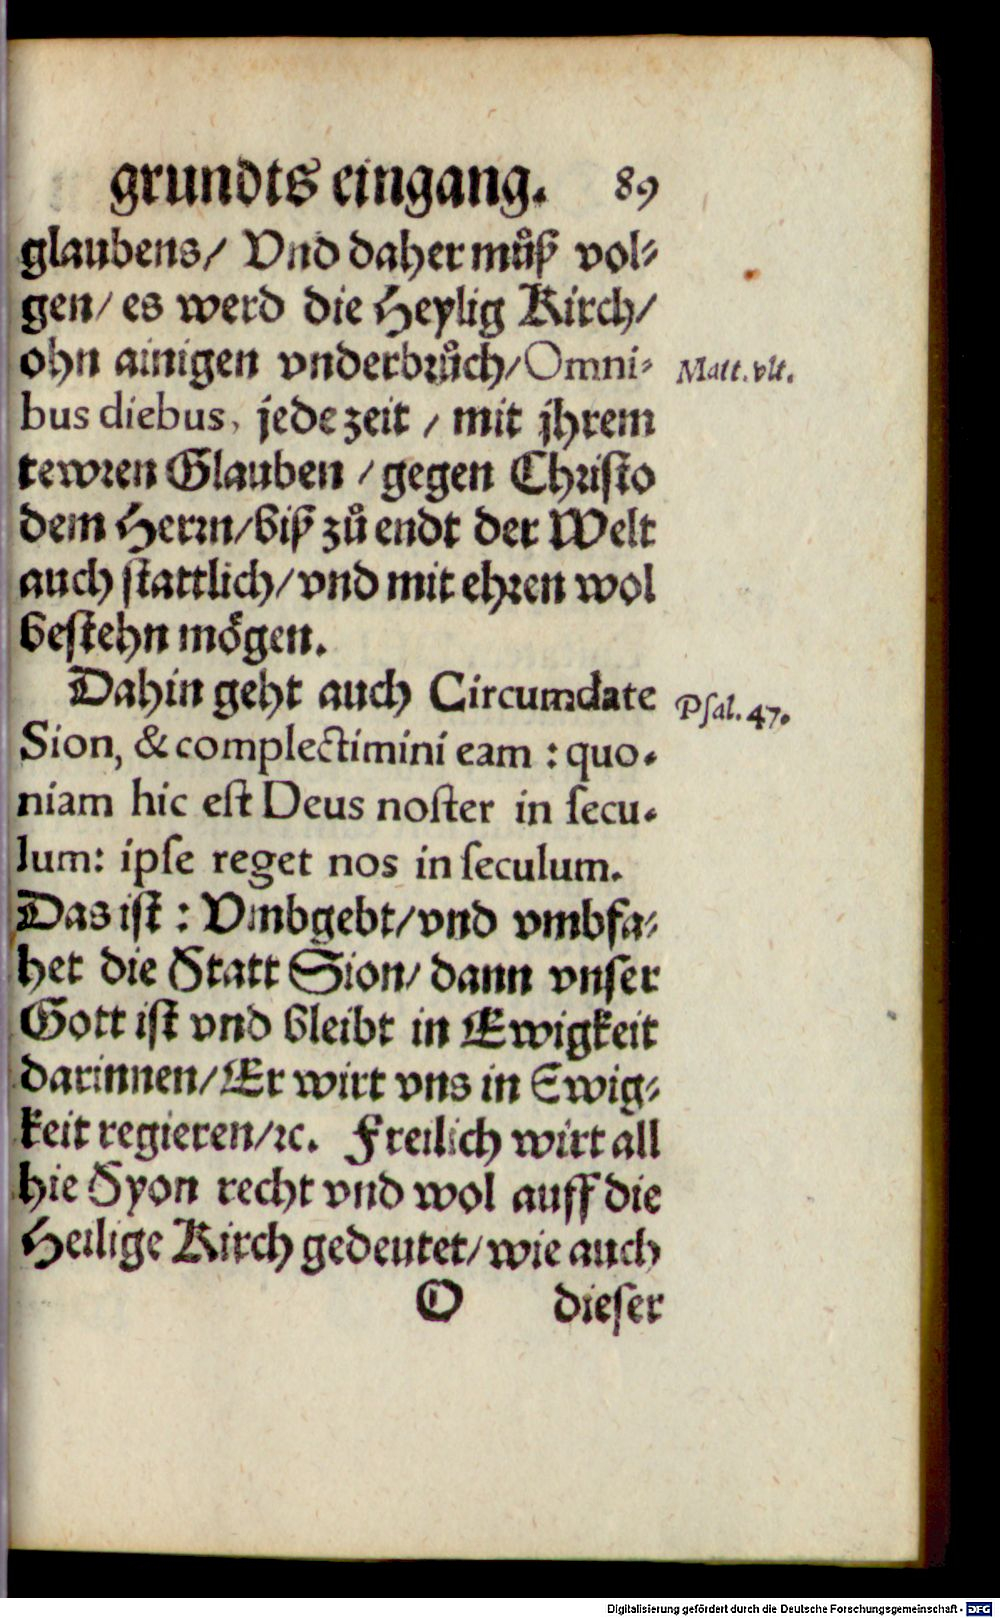 grundts eingang. 89
glaubens/ Vnd daher můß vol⸗
gen/ es werd die Heylig Kirch/
ohn ainigen vnderbrůch/ Omni⸗ Matt. vlt.
bus diebus, jede zeit / mit jhrem
tewren Glauben / gegen Christo
dem Herrn/ biß zů endt der Welt
auch stattlich/ vnd mit ehren wol
bestehn mögen.
Dahin geht auch Circumdate Psal. 47.
Sion, & complectimini eam : quo⸗
niam hic est Deus noster in secu⸗
lum: ipse reget nos in seculum.
Das ist : Vmbgebt/ vnd vmbfa⸗
het die Statt Sion/ dann vnser
Gott ist vnd bleibt in Ewigkeit
darinnen/ Er wirt vns in Ewig⸗
keit regieren/ ꝛc. Freilich wirt all
hie Syon recht vnd wol auff die
Heilige Kirch gedeutet/ wie auch
O dieser
Digitalisierung gefördert durch die Deutsche Forschungsgemeinschaft - DFG